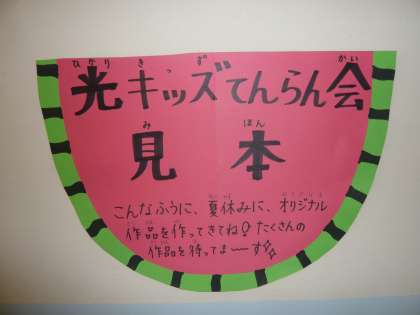 光キッズてんらん会
見本
こんなふうに、夏休みに、オリジナル
作品を作ってきてね!たくさんの
作品を待ってま〜す